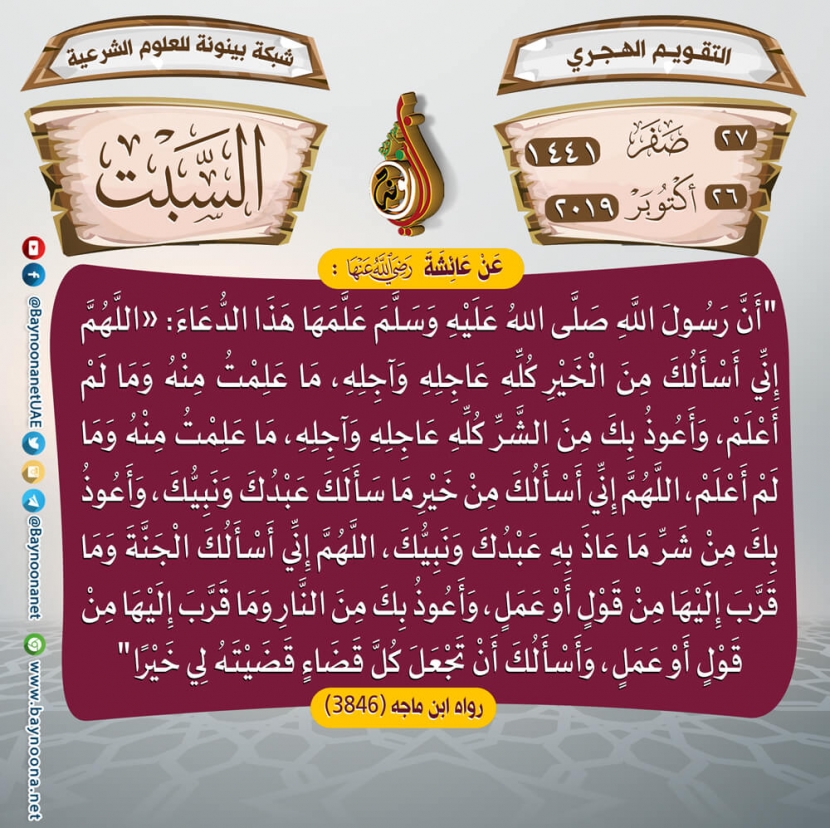 التقويم الهجري
شبكة بينونة للعلوم الشرعية
٢٧ صَفَر ١٤٤١
٢٦ أكْتُوبَر ٢٠١٩
السَّبْت
عَنْ عَائِشَةَ رَضِيَ اللَّهُ عَنْهَا :
"أَنَّ رَسُولَ اللَّهِ صَلَّى اللهُ عَلَيْهِ وَسَلَّمَ عَلَّمَهَا هَذَا الدُّعَاءَ: «اللَّهُمَّ
إِنِّي أَسْأَلُكَ مِنَ الْخَيْرِ كُلِّهِ عَاجِلِهِ وَآجِلِهِ، مَا عَلِمْتُ مِنْهُ وَمَا لَمْ
أَعْلَمْ، وَأَعُوذُ بِكَ مِنَ الشَّرِّ كُلِّهِ عَاجِلِهِ وَآجِلِهِ، مَا عَلِمْتُ مِنْهُ وَمَا
لَمْ أَعْلَمْ، اللَّهُمَّ إِنِّي أَسْأَلُكَ مِنْ خَيْرِ مَا سَأَلَكَ عَبْدُكَ وَنَبِيُّكَ، وَأَعُوذُ
بِكَ مِنْ شَرِّ مَا عَاذَ بِهِ عَبْدُكَ وَنَبِيُّكَ، اللَّهُمَّ إِنِّي أَسْأَلُكَ الْجَنَّةَ وَمَا
قَرَّبَ إِلَيْهَا مِنْ قَوْلٍ أَوْ عَمَلٍ، وَأَعُوذُ بِكَ مِنَ النَّارِ وَمَا قَرَّبَ إِلَيْهَا مِنْ
قَوْلٍ أَوْ عَمَلٍ، وَأَسْأَلُكَ أَنْ تَجْعَلَ كُلَّ قَضَاءٍ قَضَيْتَهُ لِي خَيْرًا"
رواه ابن ماجه (3846)
@BaynoonanetUAE
@Baynoonanet
www.baynoona.net